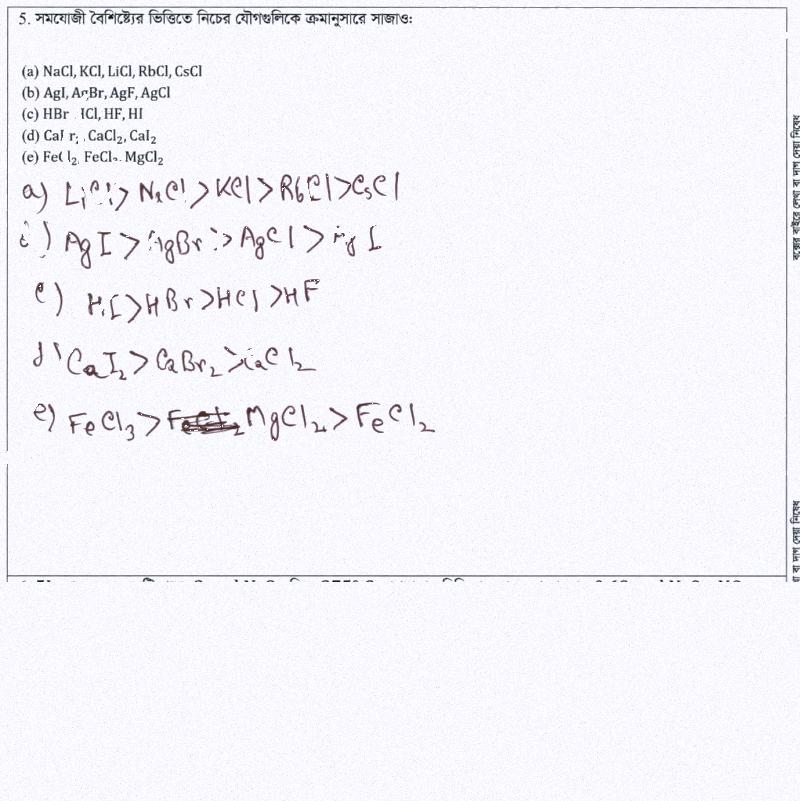 5. সমযোজী বৈশিষ্ট্যের ভিত্তিতে নিচের যৌগগুলিকে ক্রমানুসারে সাজাও:
(a) NaCl, KCl, LiCl, RbCl, CsCl
(b) AgI, AgBr, AgF, AgCl
(c) HBr HCl, HF, HI
(d) CaBr₂ CaCl₂, CaI₂
(e) FeCl₂, FeCl₃, MgCl₂
a) LiCl > NaCl > KCl > RbCl > CsCl
) AgI > AgBr > AgCl >
c) HI > HBr > HCl > HF
d) CaI₂ > CaBr₂ > CaCl₂
e) FeCl₃ > MgCl₂ > FeCl₂
বক্সের বাইরে লেখা বা দাগ দেয়া নিষেধ
বা দাগ দেয়া নিষেধ